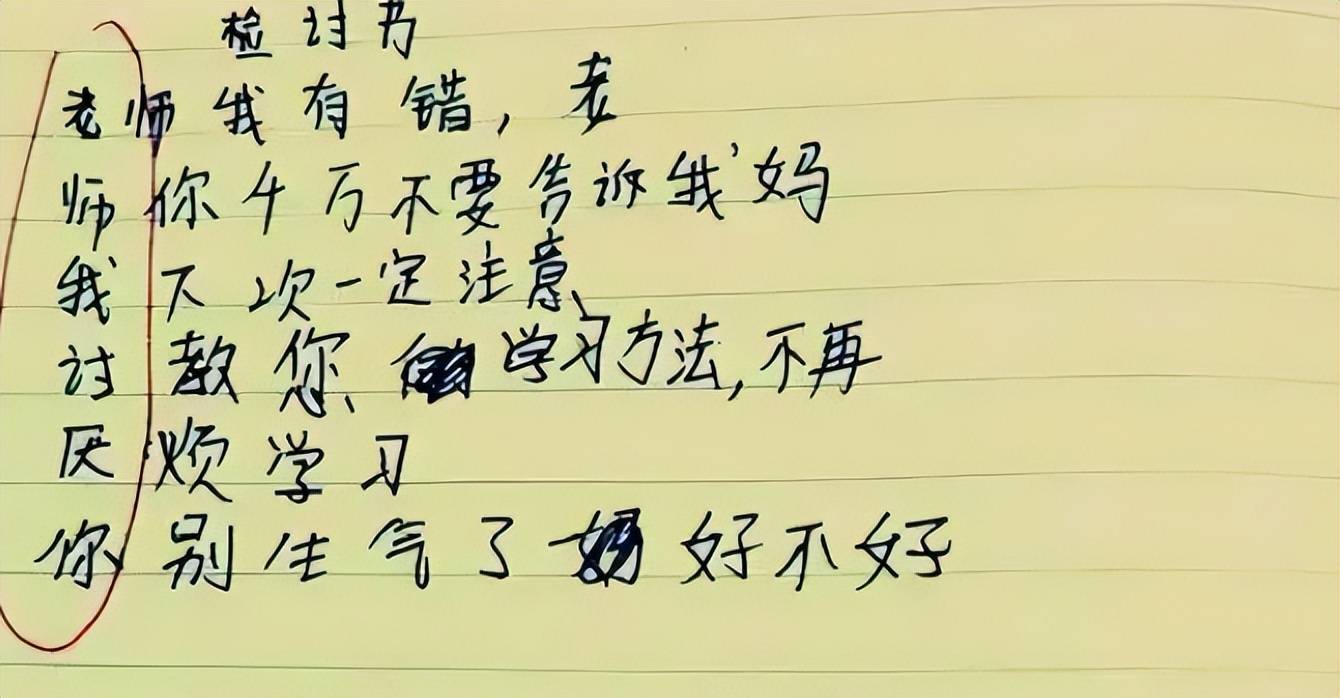 检讨书
老师我有错，老
师你千万不要告诉我妈
我下次一定注意
讨教您学习方法，不再
厌烦学习
你别生气了好不好